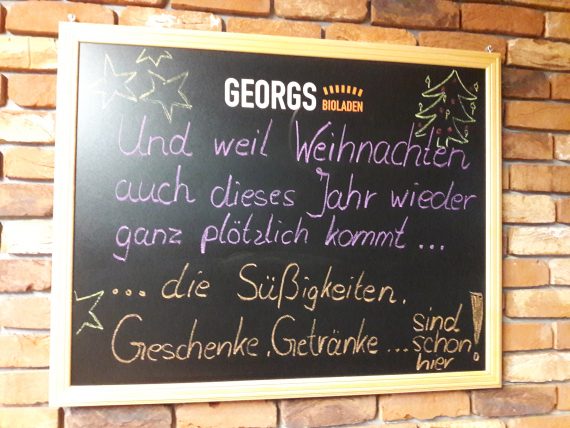 GEORGS BIOLADEN
Und weil Weihnachten
auch dieses Jahr wieder
ganz plötzlich kommt ...
... die Süßigkeiten,
Geschenke, Getränke ... sind schon hier!